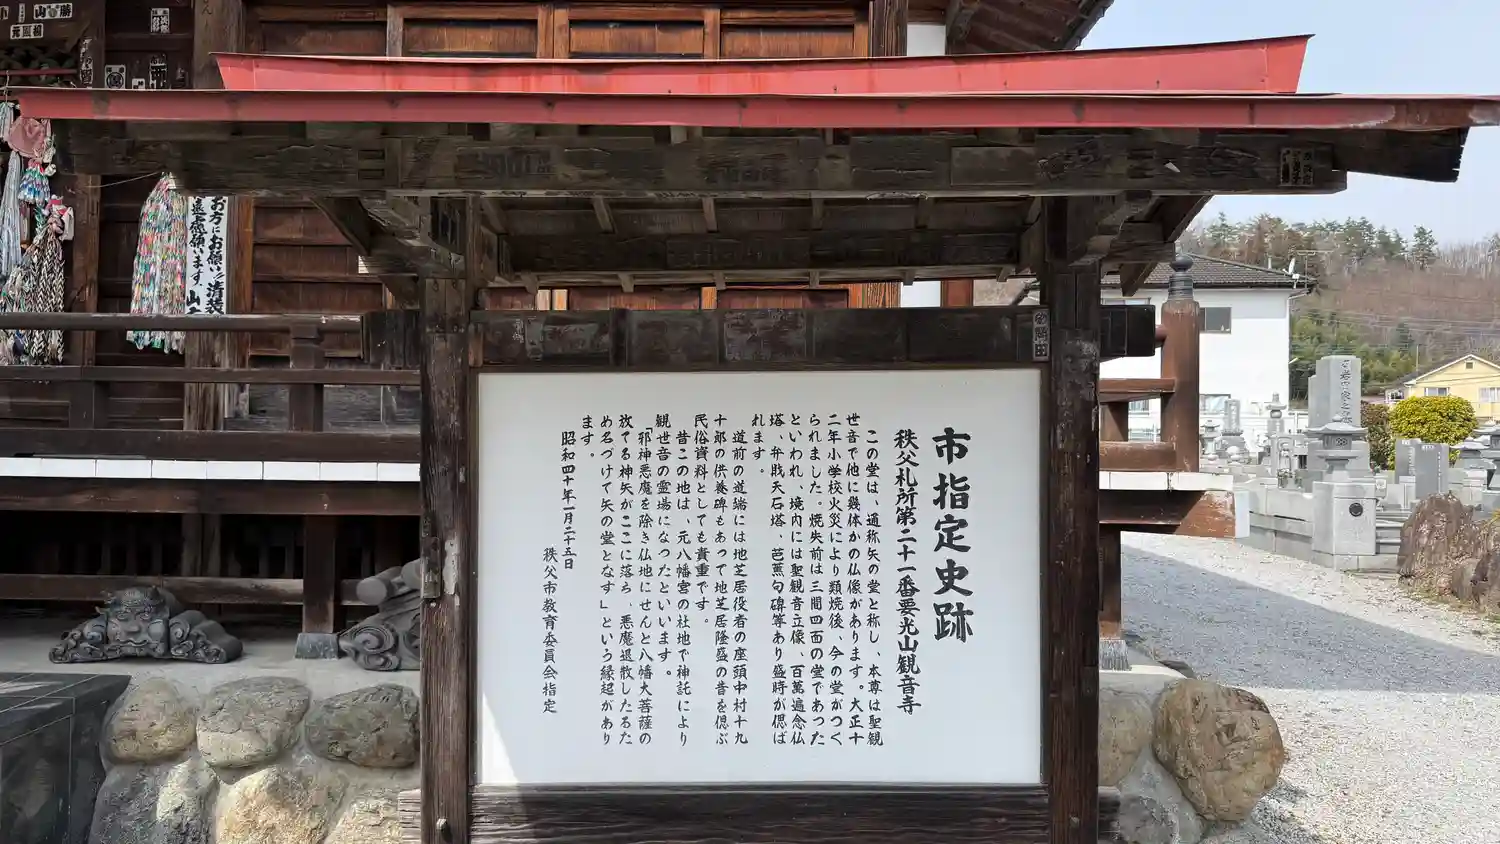 市指定史跡
秩父札所第二十一番要光山観音寺
この堂は、通称矢の堂と称し、本尊は聖観
世音で他に幾体かの仏像があります。大正十
二年小学校火災により類焼後、今の堂がつく
られました。焼失前は三間四面の堂であった
といわれ、境内には聖観音立像、百萬遍念仏
塔、弁戝天石塔、芭蕉句碑等あり盛時が偲ば
れます。
道前の道端には地芝居役者の座頭中村十九
十郎の供養碑もあって地芝居隆盛の昔を偲ぶ
民俗資料としても貴重です。
昔この地は、元八幡宮の社地で神託により
観世音の霊場になったといいます。
「邪神悪魔を除き仏地にせんと八幡大菩薩の
放てる神矢がここに落ち、悪魔退散したるた
め名づけて矢の堂となす」という縁起があり
ます。
昭和四十年一月二十五日
秩父市教育委員会指定
お方にお願い
遠慮願います、山
清装